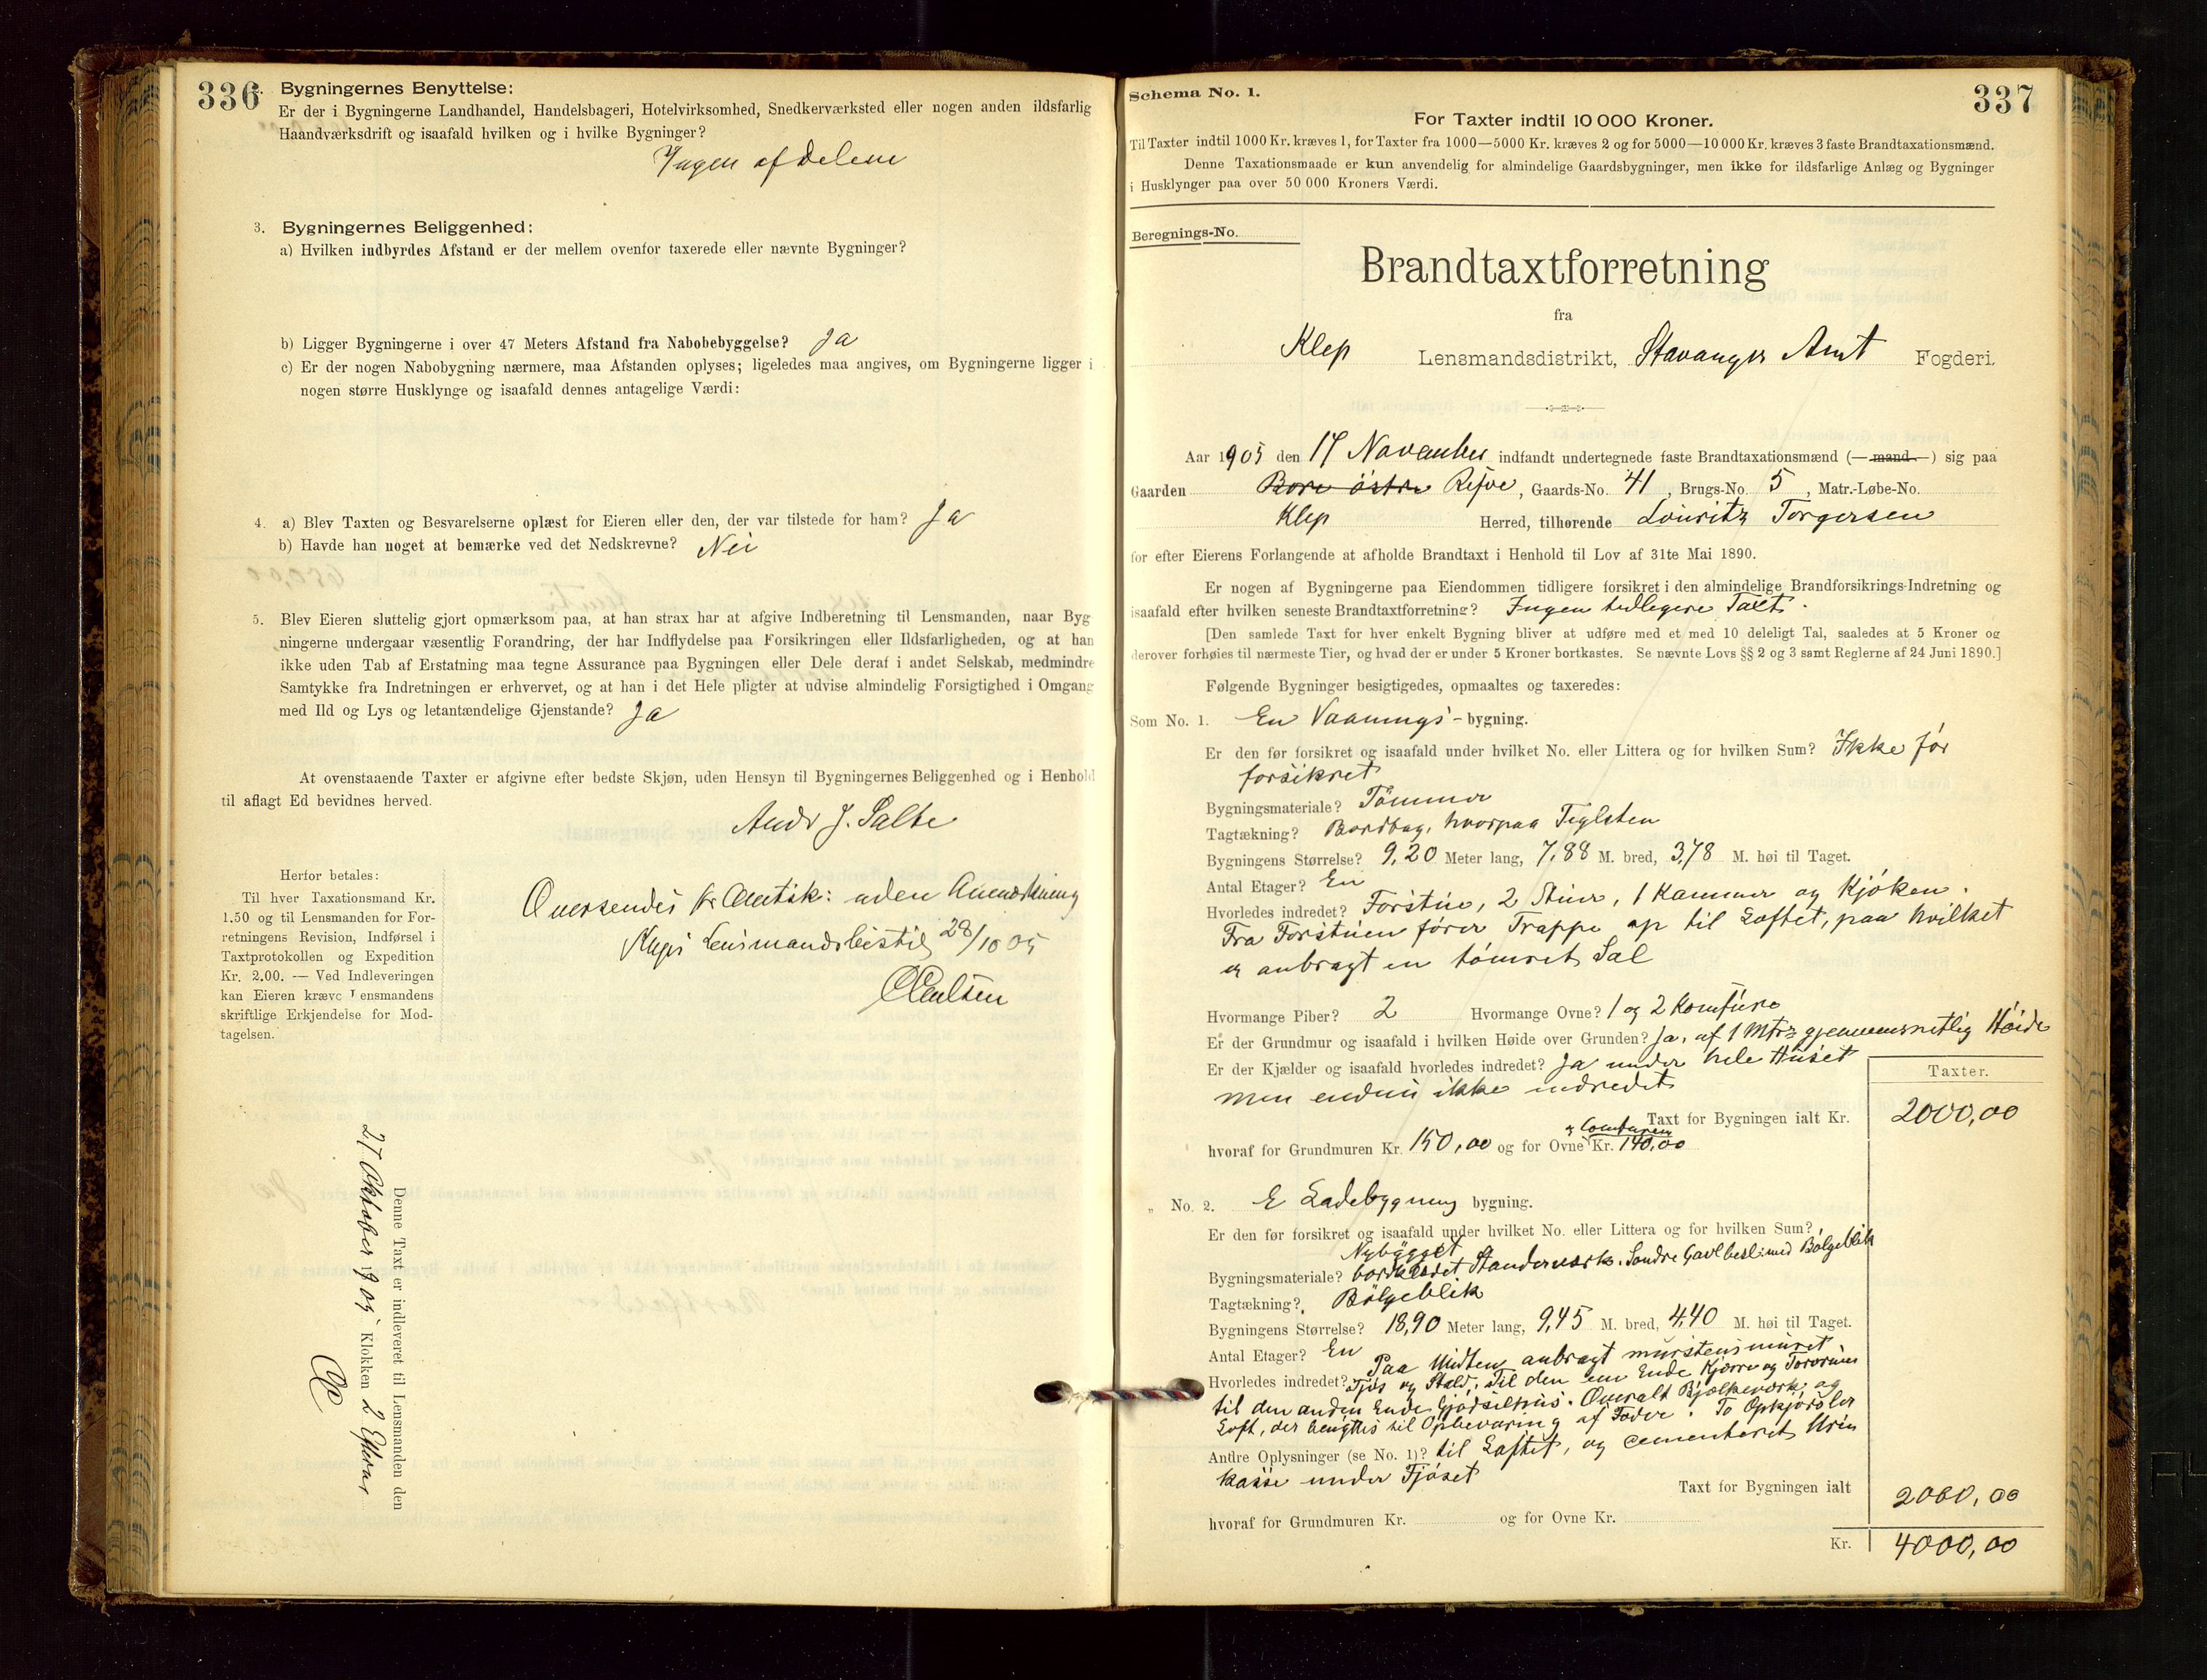 336
Bygningernes Benyttelse:
Er der i Bygningerne Landhandel, Handelsbageri, Hotelvirksomhed, Snedkerværksted eller nogen anden ildsfarlig
Haandværksdrift og isaafald hvilken og i hvilke Bygninger?
Ingen af delene
3. Bygningernes Beliggenhed:
a) Hvilken indbyrdes Afstand er der mellem ovenfor taxerede eller nævnte Bygninger?
b) Ligger Bygningerne i over 47 Meters Afstand fra Nabobebyggelse? Ja
c) Er der nogen Nabobygning nærmere, maa Afstanden oplyses; ligeledes maa angives, om Bygningerne ligger i
nogen større Husklynge og isaafald dennes antagelige Værdi:
4. a) Blev Taxten og Besvarelserne oplæst for Eieren eller den, der var tilstede for ham? Ja
b) Havde han noget at bemærke ved det Nedskrevne? Nei
5. Blev Eieren sluttelig gjort opmærksom paa, at han strax har at afgive Indberetning til Lensmanden, naar Byg-
ningerne undergaar væsentlig Forandring, der har Indflydelse paa Forsikringen eller Ildsfarligheden, og at han
ikke uden Tab af Erstatning maa tegne Assurance paa Bygningen eller Dele deraf i andet Selskab, medmindre
Samtykke fra Indretningen er erhvervet, og at han i det Hele pligter at udvise almindelig Forsigtighed i Omgang
med Ild og Lys og letantændelige Gjenstande? Ja
At ovenstaaende Taxter er afgivne efter bedste Skjøn, uden Hensyn til Bygningernes Beliggenhed og i Henhold
til aflagt Ed bevidnes herved.
Andr J. Salte
Herfor betales:
Til hver Taxationsmand Kr.
1.50 og til Lensmanden for For-
retningens Revision, Indførsel i
Taxtprotokollen og Expedition
Kr. 2.00. — Ved Indleveringen
kan Eieren kræve Lensmandens
skriftlige Erkjendelse for Mod-
tagelsen.
Oversendes uden Anmærkning
Lensmandsbestil 28/10 05
Denne Taxt er indleveret til Lensmanden den
27 Oktober 1905 Klokken 2 Efterm
Schema No. 1.
337
For Taxter indtil 10 000 Kroner.
Til Taxter indtil 1000 Kr. kræves 1, for Taxter fra 1000—5000 Kr. kræves 2 og for 5000—10 000 Kr. kræves 3 faste Brandtaxationsmænd.
Denne Taxationsmaade er kun anvendelig for almindelige Gaardsbygninger, men ikke for ildsfarlige Anlæg og Bygninger
i Husklynger paa over 50 000 Kroners Værdi.
Beregnings-No.
Brandtaxtforretning
fra
Klep Lensmandsdistrikt, Stavanger Amt Fogderi.
Aar 1905 den 17 November indfandt undertegnede faste Brandtaxationsmænd (— mand —) sig paa
Gaarden Bore östre Refve, Gaards-No. 41, Brugs-No. 5, Matr.-Løbe-No.
Klep Herred, tilhørende Louritz Torgersen
for efter Eierens Forlangende at afholde Brandtaxt i Henhold til Lov af 31te Mai 1890.
Er nogen af Bygningerne paa Eiendommen tidligere forsikret i den almindelige Brandforsikrings-Indretning og
isaafald efter hvilken seneste Brandtaxtforretning? Ingen tidligere Taxt.
[Den samlede Taxt for hver enkelt Bygning bliver at udføre med et med 10 deleligt Tal, saaledes at 5 Kroner og
derover forhøies til nærmeste Tier, og hvad der er under 5 Kroner bortkastes. Se nævnte Lovs §§ 2 og 3 samt Reglerne af 24 Juni 1890.]
Følgende Bygninger besigtigedes, opmaaltes og taxeredes:
Som No. 1. En Vaanings-bygning.
Er den før forsikret og isaafald under hvilket No. eller Littera og for hvilken Sum? Ikke før
forsikret
Bygningsmateriale? Tömmer
Tagtækning? Bordtag, hvorpaa Teglsten
Bygningens Størrelse? 9,20 Meter lang, 7,88 M. bred, 3,78 M. høi til Taget.
Antal Etager? En
Hvorledes indredet? Forstue, 2 Stuer, 1 Kammer og Kjöken.
Fra Forstuen fører Trappe op til Loftet, paa hvilket
er anbragt en tömret Sal
Hvormange Piber? 2 Hvormange Ovne? 1 og 2 Komfure
Er der Grundmur og isaafald i hvilken Høide over Grunden? Ja, af 1 Mtrs gjennemsnitlig Höide
Er der Kjælder og isaafald hvorledes indredet? Ja under hele Huset
men endnu ikke indredet
Taxter.
Taxt for Bygningen ialt Kr. 2000,00
hvoraf for Grundmuren Kr. 150,00 og for Ovne og Comfuren Kr. 140,00
„ No. 2. E Ladebygning bygning.
Er den før forsikret og isaafald under hvilket No. eller Littera og for hvilken Sum?
Nybygget
Bygningsmateriale? bordklædt Standerværk. Söndre Gavl besl: med Bölgeblik
Tagtækning? Bölgeblik
Bygningens Størrelse? 18,90 Meter lang, 9,45 M. bred, 4,40 M. høi til Taget.
Antal Etager? En
Hvorledes indredet? Paa Midten anbragt murstensmuret
Fjös og Stald. Til den ene Ende Kjørre og Torvrum
til den anden Ende Gjödselhus. Overalt Bjælkeværk og
Loft, der benyttes til Opbevaring af Foder. To Opkjörsler
Andre Oplysninger (se No. 1)? til Loftet, og cementeret Urin
kasse under Fjöset
Taxt for Bygningen ialt 2000,00
hvoraf for Grundmuren Kr. og for Ovne Kr.
Kr. 4000,00